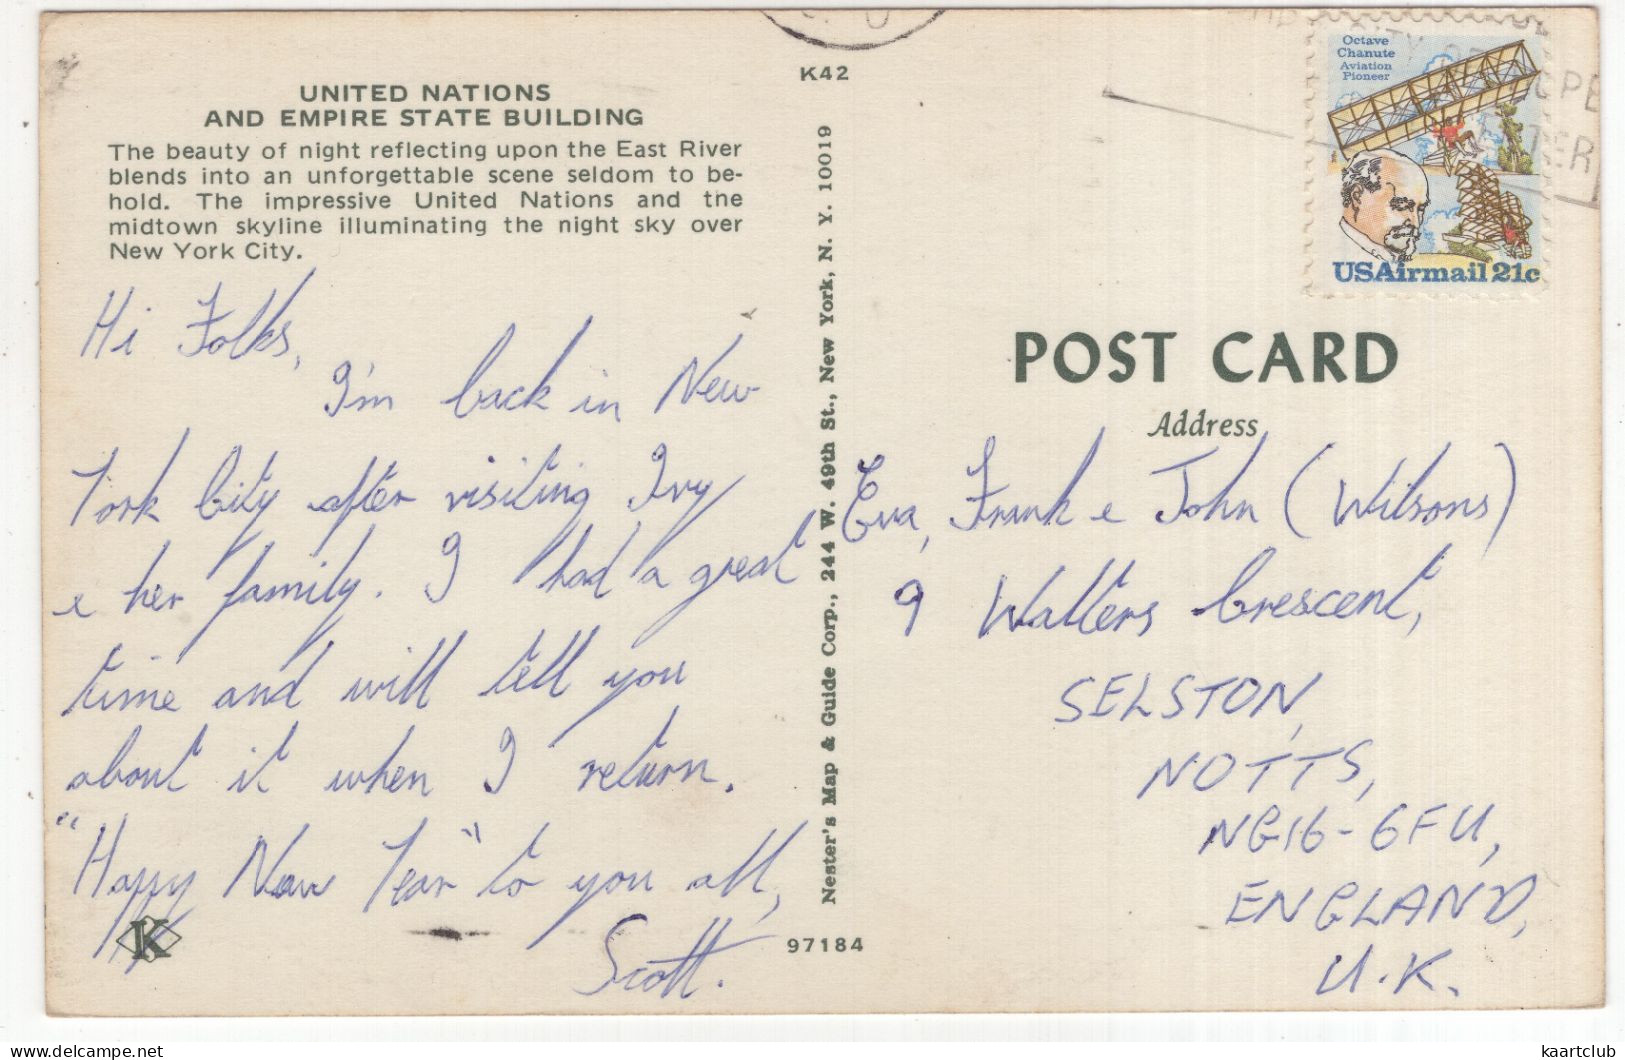 UNITED NATIONS
AND EMPIRE STATE BUILDING
The beauty of night reflecting upon the East River
blends into an unforgettable scene seldom to be-
hold. The impressive United Nations and the
midtown skyline illuminating the night sky over
New York City.
Hi Folks,
I'm back in New
York City after visiting Ivy
& her family. I had a great
time and will tell you
about it when I return.
"Happy New Year" to you all,
Scott.
K
K42
Nester's Map & Guide Corp., 244 W. 49th St., New York, N. Y. 10019
97184
Octave
Chanute
Aviation
Pioneer
USAirmail 21c
POST CARD
Address
Eva, Frank & John (Wilsons)
9 Walters Crescent,
SELSTON,
NOTTS,
NG16-6FU,
ENGLAND,
U.K.
kaartclub
delcampe.net